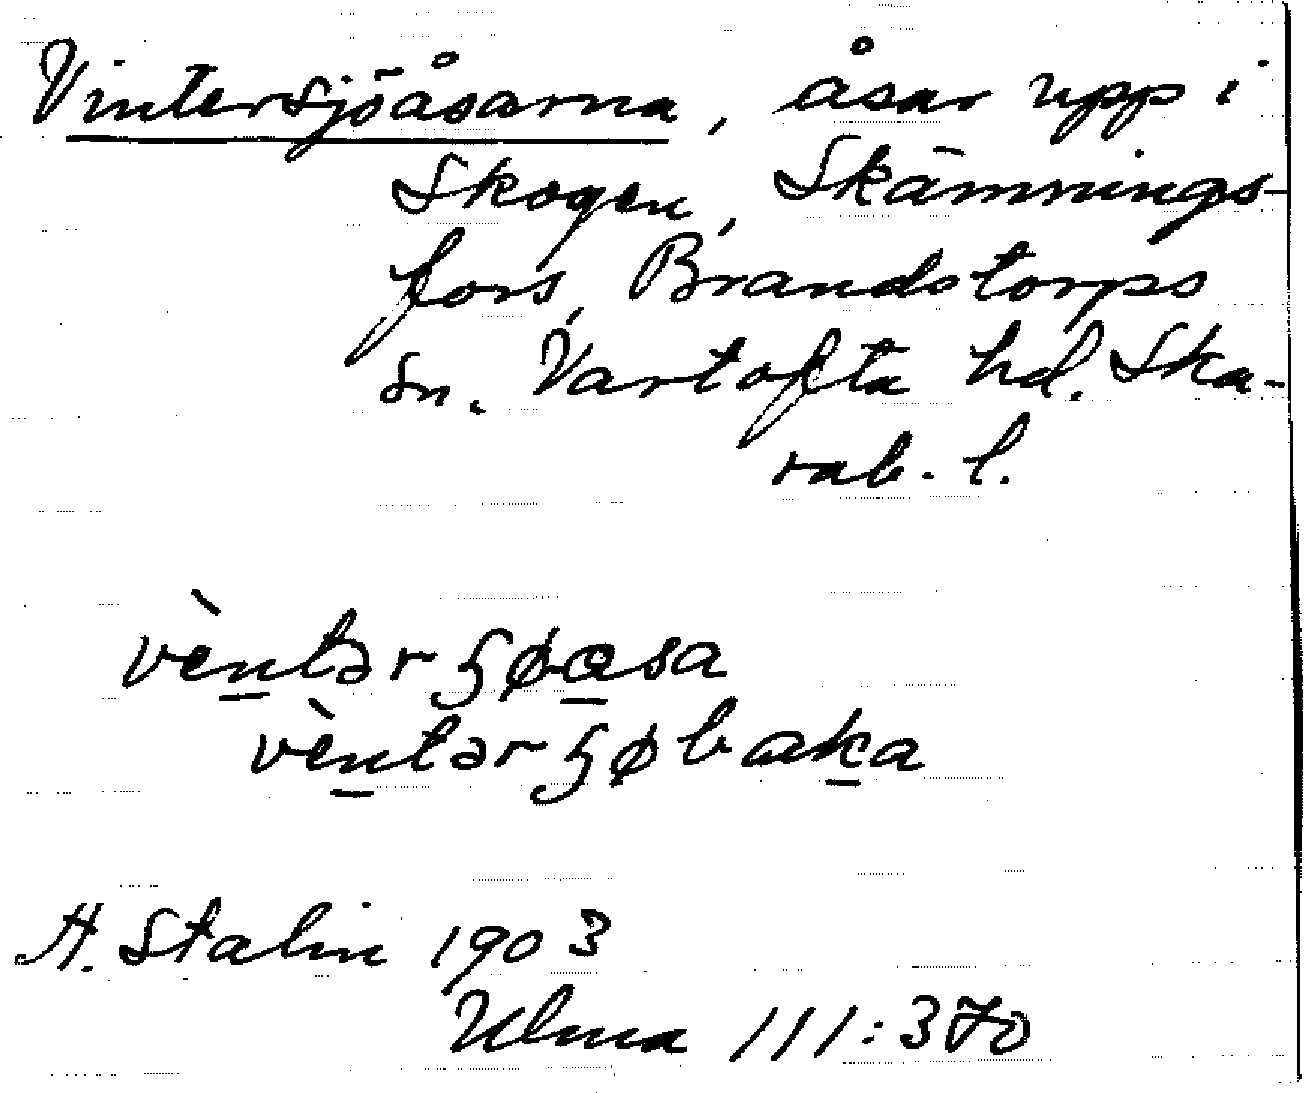 Vintersjöåsarna, åsar upp i
Skogen, Skämnings-
fors, Brandstorps
sn. Vartofta hd. Ska-
rab. l.
vèntər ɧøasa
vèntər ɧøbaka
H. Stalin 1903
Ulma 111:370